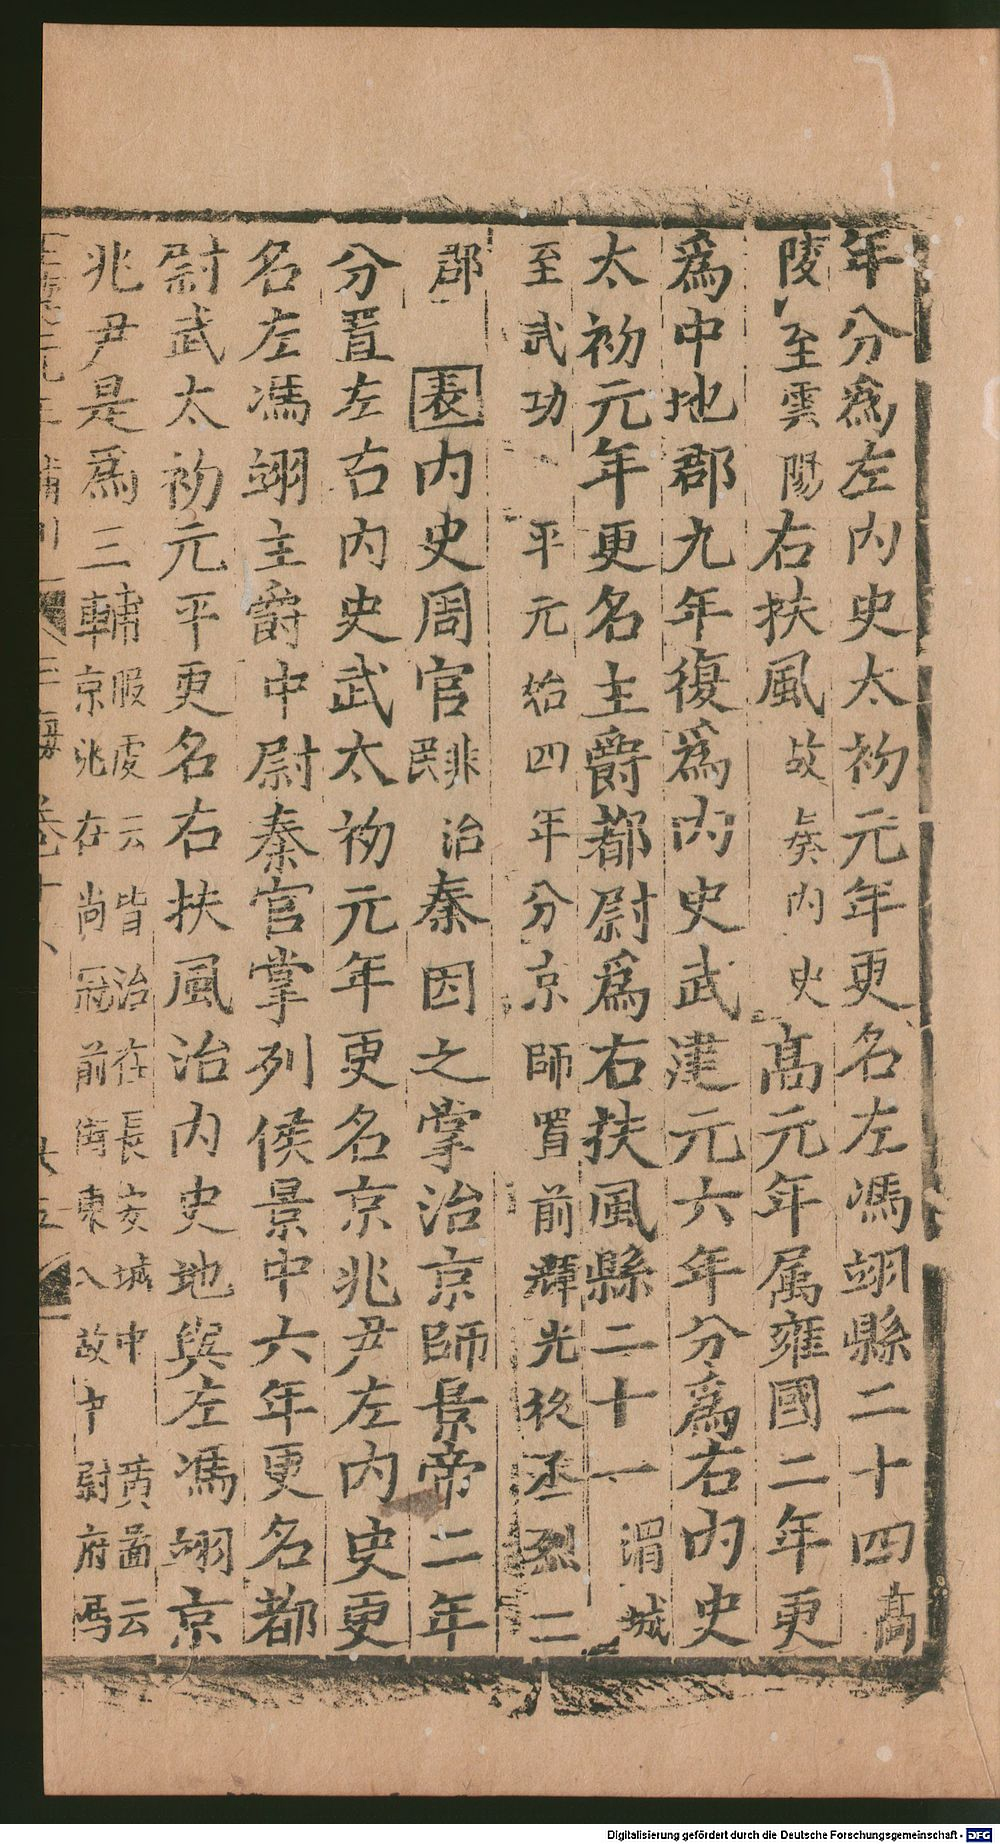 年分爲左內史太初元年更名左馮翊縣二十四高
陵至雲陽右扶風故秦內史高元年属雍國二年更
爲中地郡九年復爲內史武建元六年分爲右內史
太初元年更名主爵都尉爲右扶風縣二十一渭城
至武功平元始四年分京師置前煇光後丞烈二
郡表內史周官非治民秦因之掌治京師景帝二年
分置左右內史武太初元年更名京兆尹左內史更
名左馮翊主爵中尉秦官掌列侯景中六年更名都
尉武太初元平更名右扶風治內史地與左馮翊京
兆尹是爲三輔服虔云皆治在長安城中黄圖云京兆在尚冠前街東入故中尉府馮
卷十八
Digitalisierung gefördert durch die Deutsche Forschungsgemeinschaft - DFG